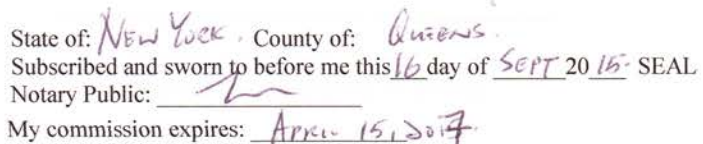 State of: NEW YORK. County of: QUEENS.
Subscribed and sworn to before me this 16 day of SEPT 20 15. SEAL
Notary Public:
My commission expires: APRIL 15, 2017